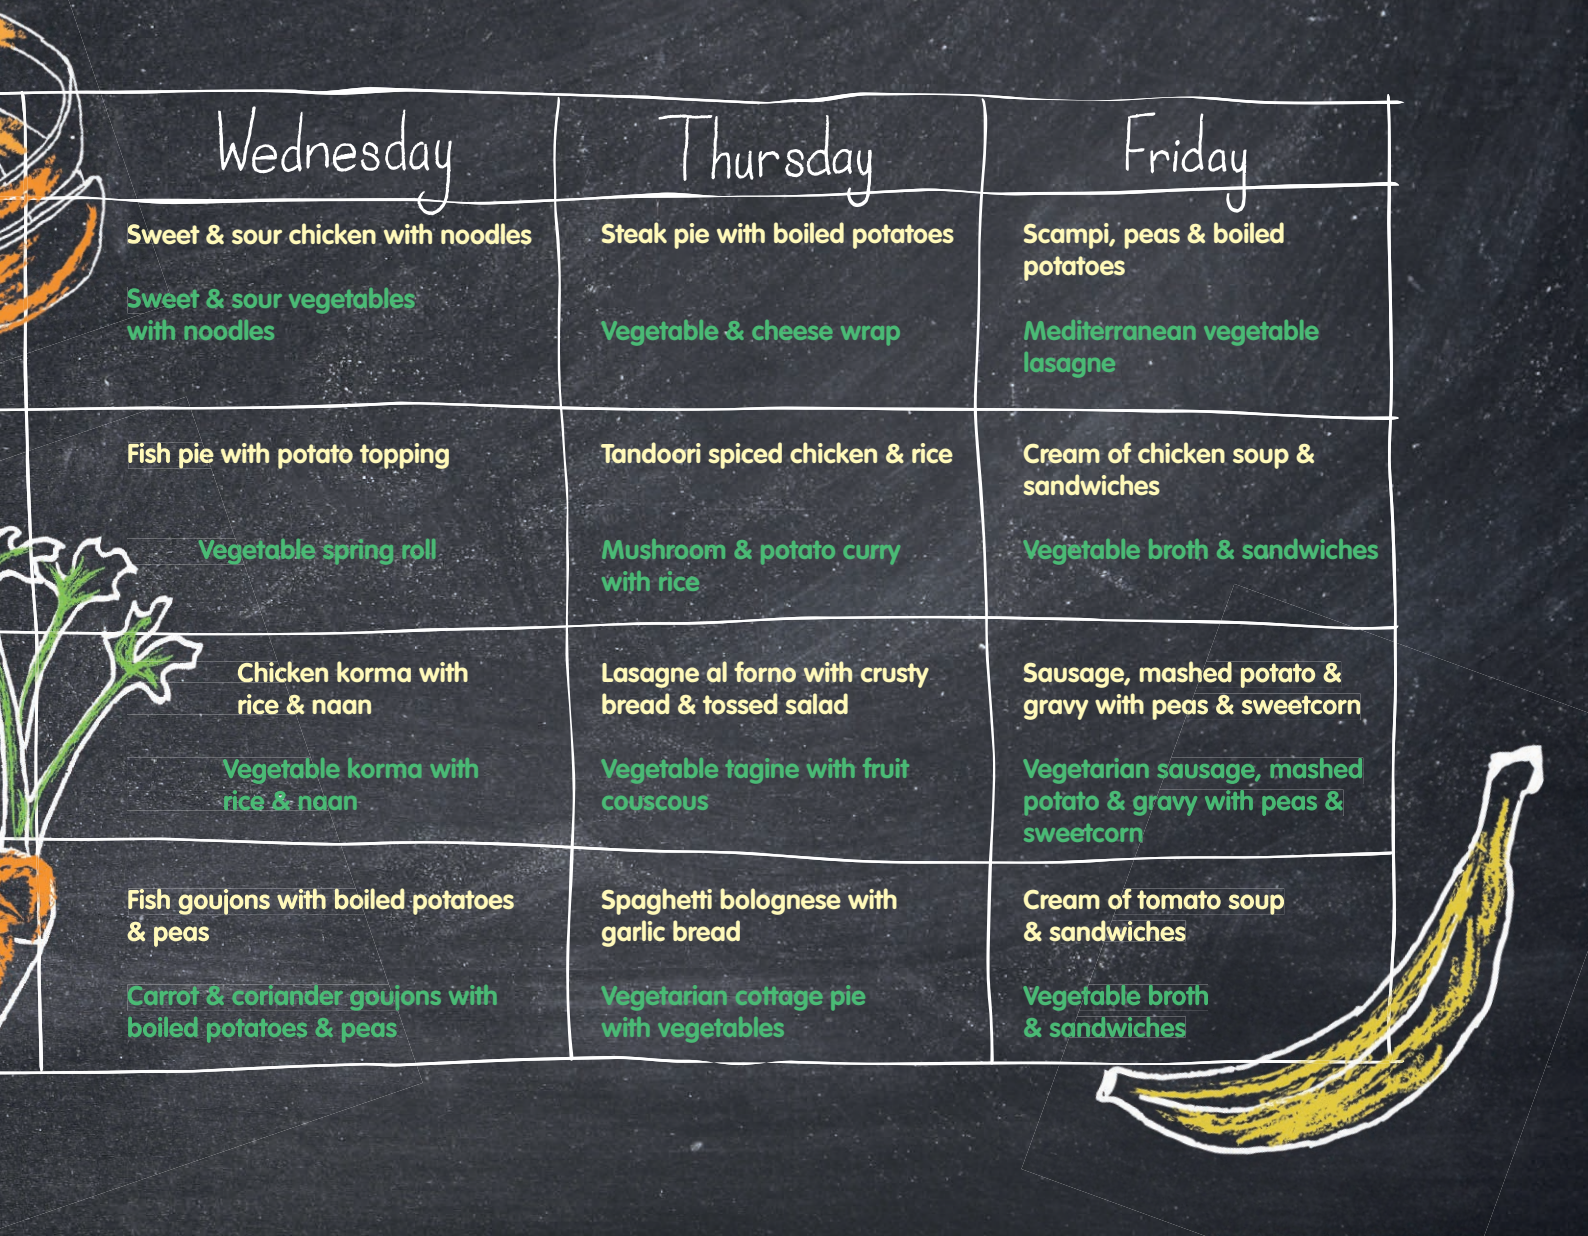 Wednesday
Thursday
Friday
Sweet & sour chicken with noodles
Sweet & sour vegetables
with noodles
Steak pie with boiled potatoes
Vegetable & cheese wrap
Scampi, peas & boiled
potatoes
Mediterranean vegetable
lasagne
Fish pie with potato topping
Vegetable spring roll
Tandoori spiced chicken & rice
Mushroom & potato curry
with rice
Cream of chicken soup &
sandwiches
Vegetable broth & sandwiches
Chicken korma with
rice & naan
Vegetable korma with
rice & naan
Lasagne al forno with crusty
bread & tossed salad
Vegetable tagine with fruit
couscous
Sausage, mashed potato &
gravy with peas & sweetcorn
Vegetarian sausage, mashed
potato & gravy with peas &
sweetcorn
Fish goujons with boiled potatoes
& peas
Carrot & coriander goujons with
boiled potatoes & peas
Spaghetti bolognese with
garlic bread
Vegetarian cottage pie
with vegetables
Cream of tomato soup
& sandwiches
Vegetable broth
& sandwiches